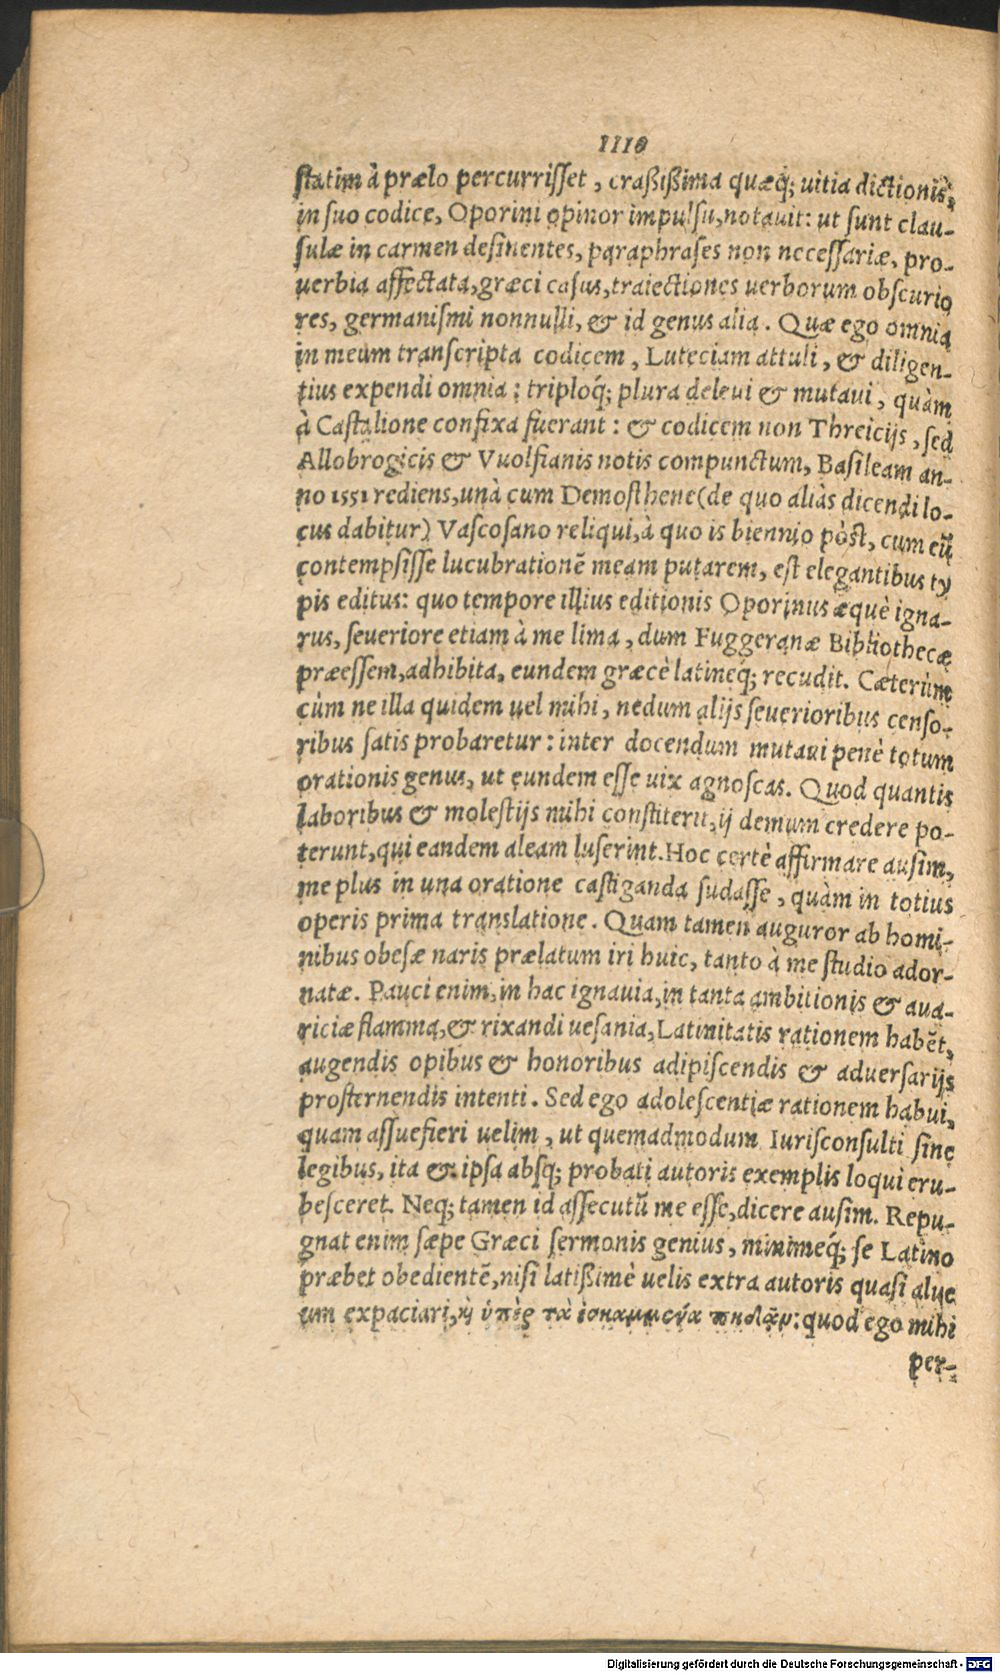 1110
ſtatim à prælo percurriſſet, craßißima quæq́; uitia dictionis,
in ſuo codice, Oporini opinor impulſu, notauit: ut ſunt clau-
ſulæ in carmen deſinentes, paraphraſes non neceſſariæ, pro-
uerbia affectata, græci caſus, traiectiones uerborum obſcurio
res, germaniſmi nonnulli, & id genus alia. Quæ ego omnia
in meum tranſcripta codicem, Luteciam attuli, & diligen-
tius expendi omnia: triploq́; plura deleui & mutaui, quàm
à Caſtalione confixa fuerant: & codicem non Threicijs, ſed
Allobrogicis & Vuolfianis notis compunctum, Baſileam an-
no 1551 rediens, unà cum Demoſthene (de quo aliàs dicendi lo-
cus dabitur) Vaſcoſano reliqui, à quo is biennio pòſt, cum eũ
contempſiſſe lucubrationẽ meam putarem, eſt elegantibus ty
pis editus: quo tempore illius editionis Oporinus æquè igna-
rus, ſeueriore etiam à me lima, dum Fuggeranæ Bibliothecæ
præeſſem, adhibita, eundem græcè latineq́; recudit. Cæterùm
cùm ne illa quidem uel mihi, nedum alijs ſeuerioribus cenſo-
ribus ſatis probaretur: inter docendum mutaui penè totum
orationis genus, ut eundem eſſe uix agnoſcas. Quod quantis
laboribus & moleſtijs mihi conſtiterit, ij demum credere po-
terunt, qui eandem aleam luſerint. Hoc certè affirmare auſim,
me plus in una oratione caſtiganda ſudaſſe, quàm in totius
operis prima translatione. Quam tamen auguror ab homi-
nibus obeſæ naris prælatum iri huic, tanto à me ſtudio ador-
natæ. Pauci enim, in hac ignauia, in tanta ambitionis & aua-
riciæ flamma, & rixandi ueſania, Latinitatis rationem habẽt,
augendis opibus & honoribus adipiſcendis & aduerſarijs
proſternendis intenti. Sed ego adoleſcentiæ rationem habui,
quam aſſuefieri uelim, ut quemadmodum Iuriſconſulti ſine
legibus, ita & ipſa abſq; probati autoris exemplis loqui eru-
beſceret. Neq; tamen id aſſecutũ me eſſe, dicere auſim. Repu-
gnat enim ſæpe Græci ſermonis genius, minimeq́; ſe Latino
præbet obedientẽ, niſi latißimè uelis extra autoris quaſi alue
um expaciari, ϗ̀ ὑπὲρ τὰ ἐσκαμμένα πηδᾷν: quod ego mihi
per-
Digitalisierung gefördert durch die Deutsche Forschungsgemeinschaft - DFG